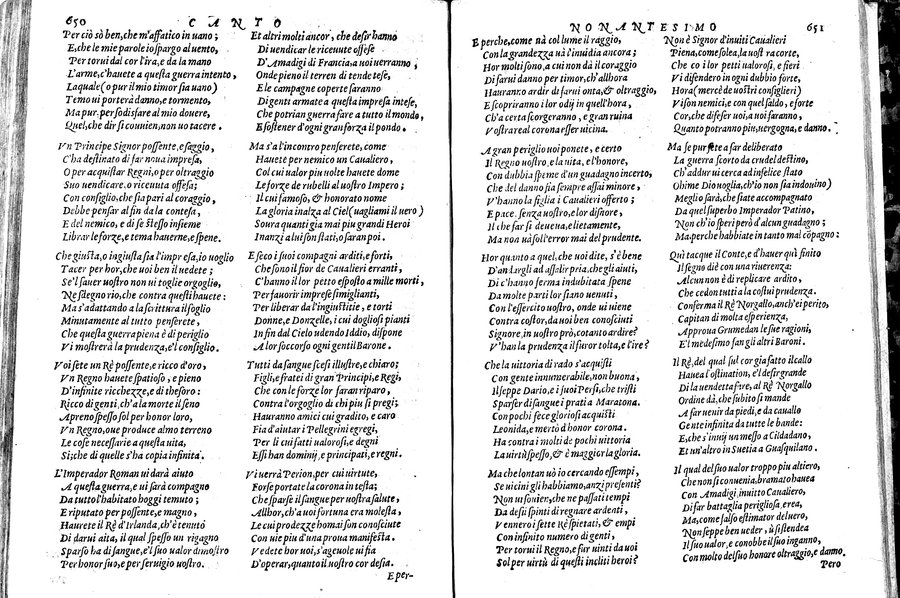 650
CANTO
Per ciò sò ben, che m'affatico in uano;
E, che le mie parole io spargo al uento,
Per torui dal cor l'ira, e da la mano
L'arme, c'hauete a questa guerra intento,
Laquale (o pur il mio timor sia uano)
Temo ui porterà danno, e tormento,
Ma pur per sodisfare al mio douere,
Quel, che dir si conuien, non uo tacere.
Vn Principe Signor possente, e saggio,
C'ha destinato di far noua impresa,
O per acquistar Regni, o per oltraggio
Suo uendicare, o riceuuta offesa;
Con consiglio, che sia pari al coraggio,
Debbe pensar al fin da la contesa,
E del nemico, e di se stesso insieme
Librar le forze, e tema hauerne, e speme.
Che giusta, o ingiusta sia l'impresa, io uoglio
Tacer per hor, che uoi ben il uedete;
Se'l sauer uostro non ui toglie orgoglio,
Ne sdegno rio, che contra questi hauete:
Ma s'adattando a la scrittura il foglio
Minutamente al tutto penserete,
Che questa guerra piena è di periglio
Vi mostrerà la prudenza, e'l consiglio.
Voi sete un Rè possente, e ricco d'oro,
Vn Regno hauete spatioso, e pieno
D'infinite ricchezze, e di thesoro:
Ricco di genti, c'hà la morte il seno
Apreno spesso sol per honor loro,
Vn Regno, oue produce almo terreno
Le cose necessarie a questa uita,
Si; che di quelle s'ha copia infinita.
L'Imperador Roman ui darà aiuto
A questa guerra, e ui sarà compagno
Da tutto l'habitato hoggi temuto;
E riputato per possente, e magno,
Haurete il Rè d'Irlanda, ch'è tenuto
Di darui aita, il qual spesso un rigagno
Sparso ha di sangue, e'l suo ualor dimostro
Per honor suo, e per seruigio uostro.
Et altri molti ancor, che desir hanno
Di uendicar le riceuute offese
D'Amadigi di Francia, a uoi uerranno,
Onde pieno il terren di tende tese,
E le campagne coperte saranno
Di genti armate a questa impresa intese,
Che potrian guerra fare a tutto il mondo,
E sostener d'ogni gran forza il pondo.
Ma s'a l'incontro penserete, come
Hauete per nemico un Caualiero,
Col cui ualor piu uolte hauete dome
Le forze de rubelli al uostro Impero;
Il cui famoso, & honorato nome
La gloria inalza al Ciel (uagliami il uero)
Soura quanti gia mai piu grandi Heroi
Inanzi a lui son stati, o saran poi.
E seco i suoi compagni arditi, e forti,
Che sono il fior de Caualieri erranti,
C'hanno il lor petto esposto a mille morti,
Per fauorir imprese simiglianti,
Per liberar da l'ingiustitie, e torti
Donne, e Donzelle, i cui dogliosi pianti
In fin dal Cielo udendo Iddio, dispone
A lor soccorso ogni gentil Barone.
Tutti da sangue scesi illustre, e chiaro;
Figli, e fratei di gran Principi, e Regi,
Che con le forze lor faran riparo,
Contra l'orgoglio di chi piu si pregi;
Hauranno amici cui gradito, e caro
Fia d'aiutar i Pellegrini egregi,
Per li cui fatti ualorosi, e degni
Essi han dominij, e principati, e regni.
Vi uerrà Perion, per cui uirtute,
Forse portate la corona in testa;
Che sparse il sangue per uostra salute,
Allhor, ch'a uoi fortuna era molesta,
Le cui prodezze homai son conosciute
Con uie piu d'una proua manifesta.
Vedete hor uoi, s'ageuole ui fia
D'operar, quanto il uostro cor desia.
Eper-
NONANTESIMO
651
E perche, come nà col lume il raggio,
Con la grandezza uà l'inuidia ancora;
Hor molti sono, a cui non dà il coraggio
Di farui danno per timor, ch'allhora
Hauranno ardir di farui onta, & oltraggio,
E scopriranno i lor odij in quell'hora,
Ch'a certa scorgeranno, e gran ruina
Vostra real corona esser uicina.
A gran periglio uoi ponete, e certo
Il Regno uostro, e la uita, e l'honore,
Con dubbia speme d'un guadagno incerto,
Che del danno fia sempre assai minore,
V'hanno la figlia i Caualieri offerto;
E pace, senza uostro, e lor disnore,
Il che far si deuea, e lietamente,
Ma non uà sol l'error mai del prudente.
Hor quanto a quel, che uoi dite, s'è bene
D'andargli ad assalir pria, che gli aiuti,
Di c'hanno ferma indubitata spene
Da molte parti lor siano uenuti,
Con l'essercito uostro, onde ui uiene
Contra costor, da uoi ben conosciuti
Signore, in uostro prò, cotanto ardire?
V'han la prudenza il furor tolta, e l'ire?
Che la uittoria di rado s'acquisti
Con gente innumerabile, non buona,
Il seppe Dario, e i suoi Persi, che tristi
Sparser di sangue i prati a Maratona.
Con pochi fece gloriosi acquisti
Leonida, e mertò d'honor corona.
Ha contra i molti de pochi uittoria
La uirtù spesso, & è maggior la gloria.
Ma che lontan uò io cercando essempi,
Se uicini gli habbiamo, anzi presenti?
Non ui souien, che ne passati tempi
Da desij spinti di regnare ardenti,
Vennero i sette Rè spietati, & empi
Con infinito numero di genti,
Per torui il Regno, e fur uinti da uoi
Sol per uirtù di questi incliti heroi?
Non è Signor d'inuiti Cauaalieri
Piena, come solea, la uostra corte,
Che co i lor petti ualorosi, e fieri
Vi difendero in ogni dubbio forte,
Hora (mercè de uostri consiglieri)
Vi son nemici, e con quel saldo, e forte
Cor, che difese uoi, a uoi faranno,
Quanto potranno piu, uergogna, e danno.
Ma se pur sete a far deliberato
La guerra scorto da crudel destino,
Ch'ad dur ui cerca ad infelice stato
Ohime Dio uoglia, ch'io non sia indouino)
Meglio sarà, che siate accompagnato
Da quel superbo Imperador Patino,
Non ch'io sperì però d'alcun guadagno;
Ma, perche habbiate in tanto mal cōpagno:
Quì tacque il Conte, e d'hauer quì finito
Il segno diè con una riuerenza:
Alcun non è di replicare ardito,
Che cedon tutti a la costui prudenza.
Conferma il Rè Norgallo, anch'ei perito,
Capitan di molta esperienza,
Approua Grumedan le sue ragioni,
E'l medesimo fan gli altri Baroni.
Il Rè, del qual sul cor già fatto il callo
Hauea l'ostination, e'l desir grande
Di la uendetta fare, al Rè Norgallo
Ordine dà, che subito si mande
A far uenir da piedi, e da cauallo
Gente infinita da tutte le bande:
E, che s'inuij un messo a Cildadano,
Et un'altro in Suetia a Guasquilano.
Il qual del suo ualor troppo piu altiero,
Che non si conuenia, bramato hauea
Con Amadigi, inuitto Caualiero,
Di far battaglia perigliosa, e rea,
Ma, come falso estimator del uero,
Non seppe ben ueder, ù si stendea
Il suo ualor, e conobbe il suo inganno,
Con molto del suo honore oltraggio, e danno.
Pero